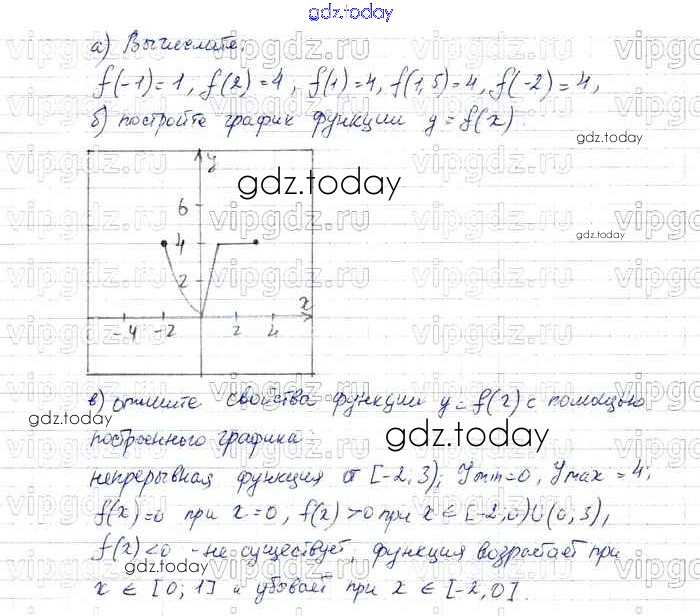 gdz.today
а) Вычислите:
f(-1)=1, f(2)=4, f(1)=4, f(1,5)=4, f(-2)=4,
б) постройте график функции y=f(x).
gdz.today
y
gdz.today
6
4
gdz.today
2
x
-4 -2 2 4
в) опишите свойства функции y=f(x) с помощью
gdz.today
построенного графика:
gdz.today
непрерывная функция от [-2,3); Ymin=0, Ymax=4;
f(x)=0 при x=0, f(x)>0 при x∈[-2,0)∪(0,3),
f(x)<0 - не существует; функция возрастает при
gdz.today
x ∈ [0;1] и убывает при x ∈ [-2,0].
gdz.today
vipgdz.ru